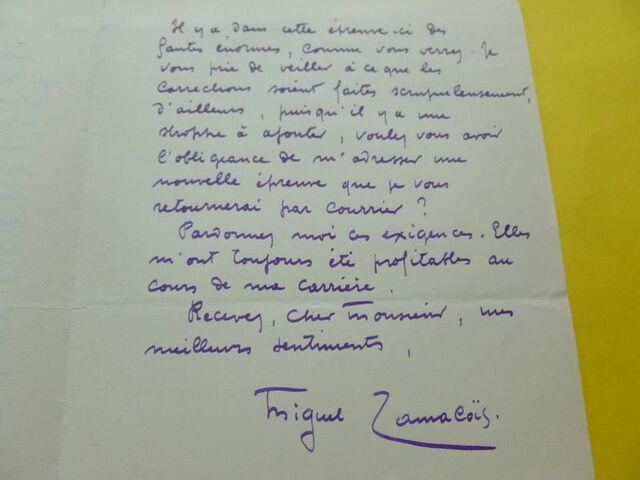 Il y a dans cette épreuve-ci des
fautes énormes, comme vous verrez. Je
vous prie de veiller à ce que les
corrections soient faites scrupuleusement,
d'ailleurs, puisqu'il y a une
strophe à ajouter, voulez vous avoir
l'obligeance de m'adresser une
nouvelle épreuve que je vous
retournerai par courrier ?
Pardonnez moi ces exigences. Elles
m'ont toujours été profitables au
cours de ma carrière.
Recevez, Cher Monsieur, mes
meilleurs sentiments,
Miguel Zamacoïs.